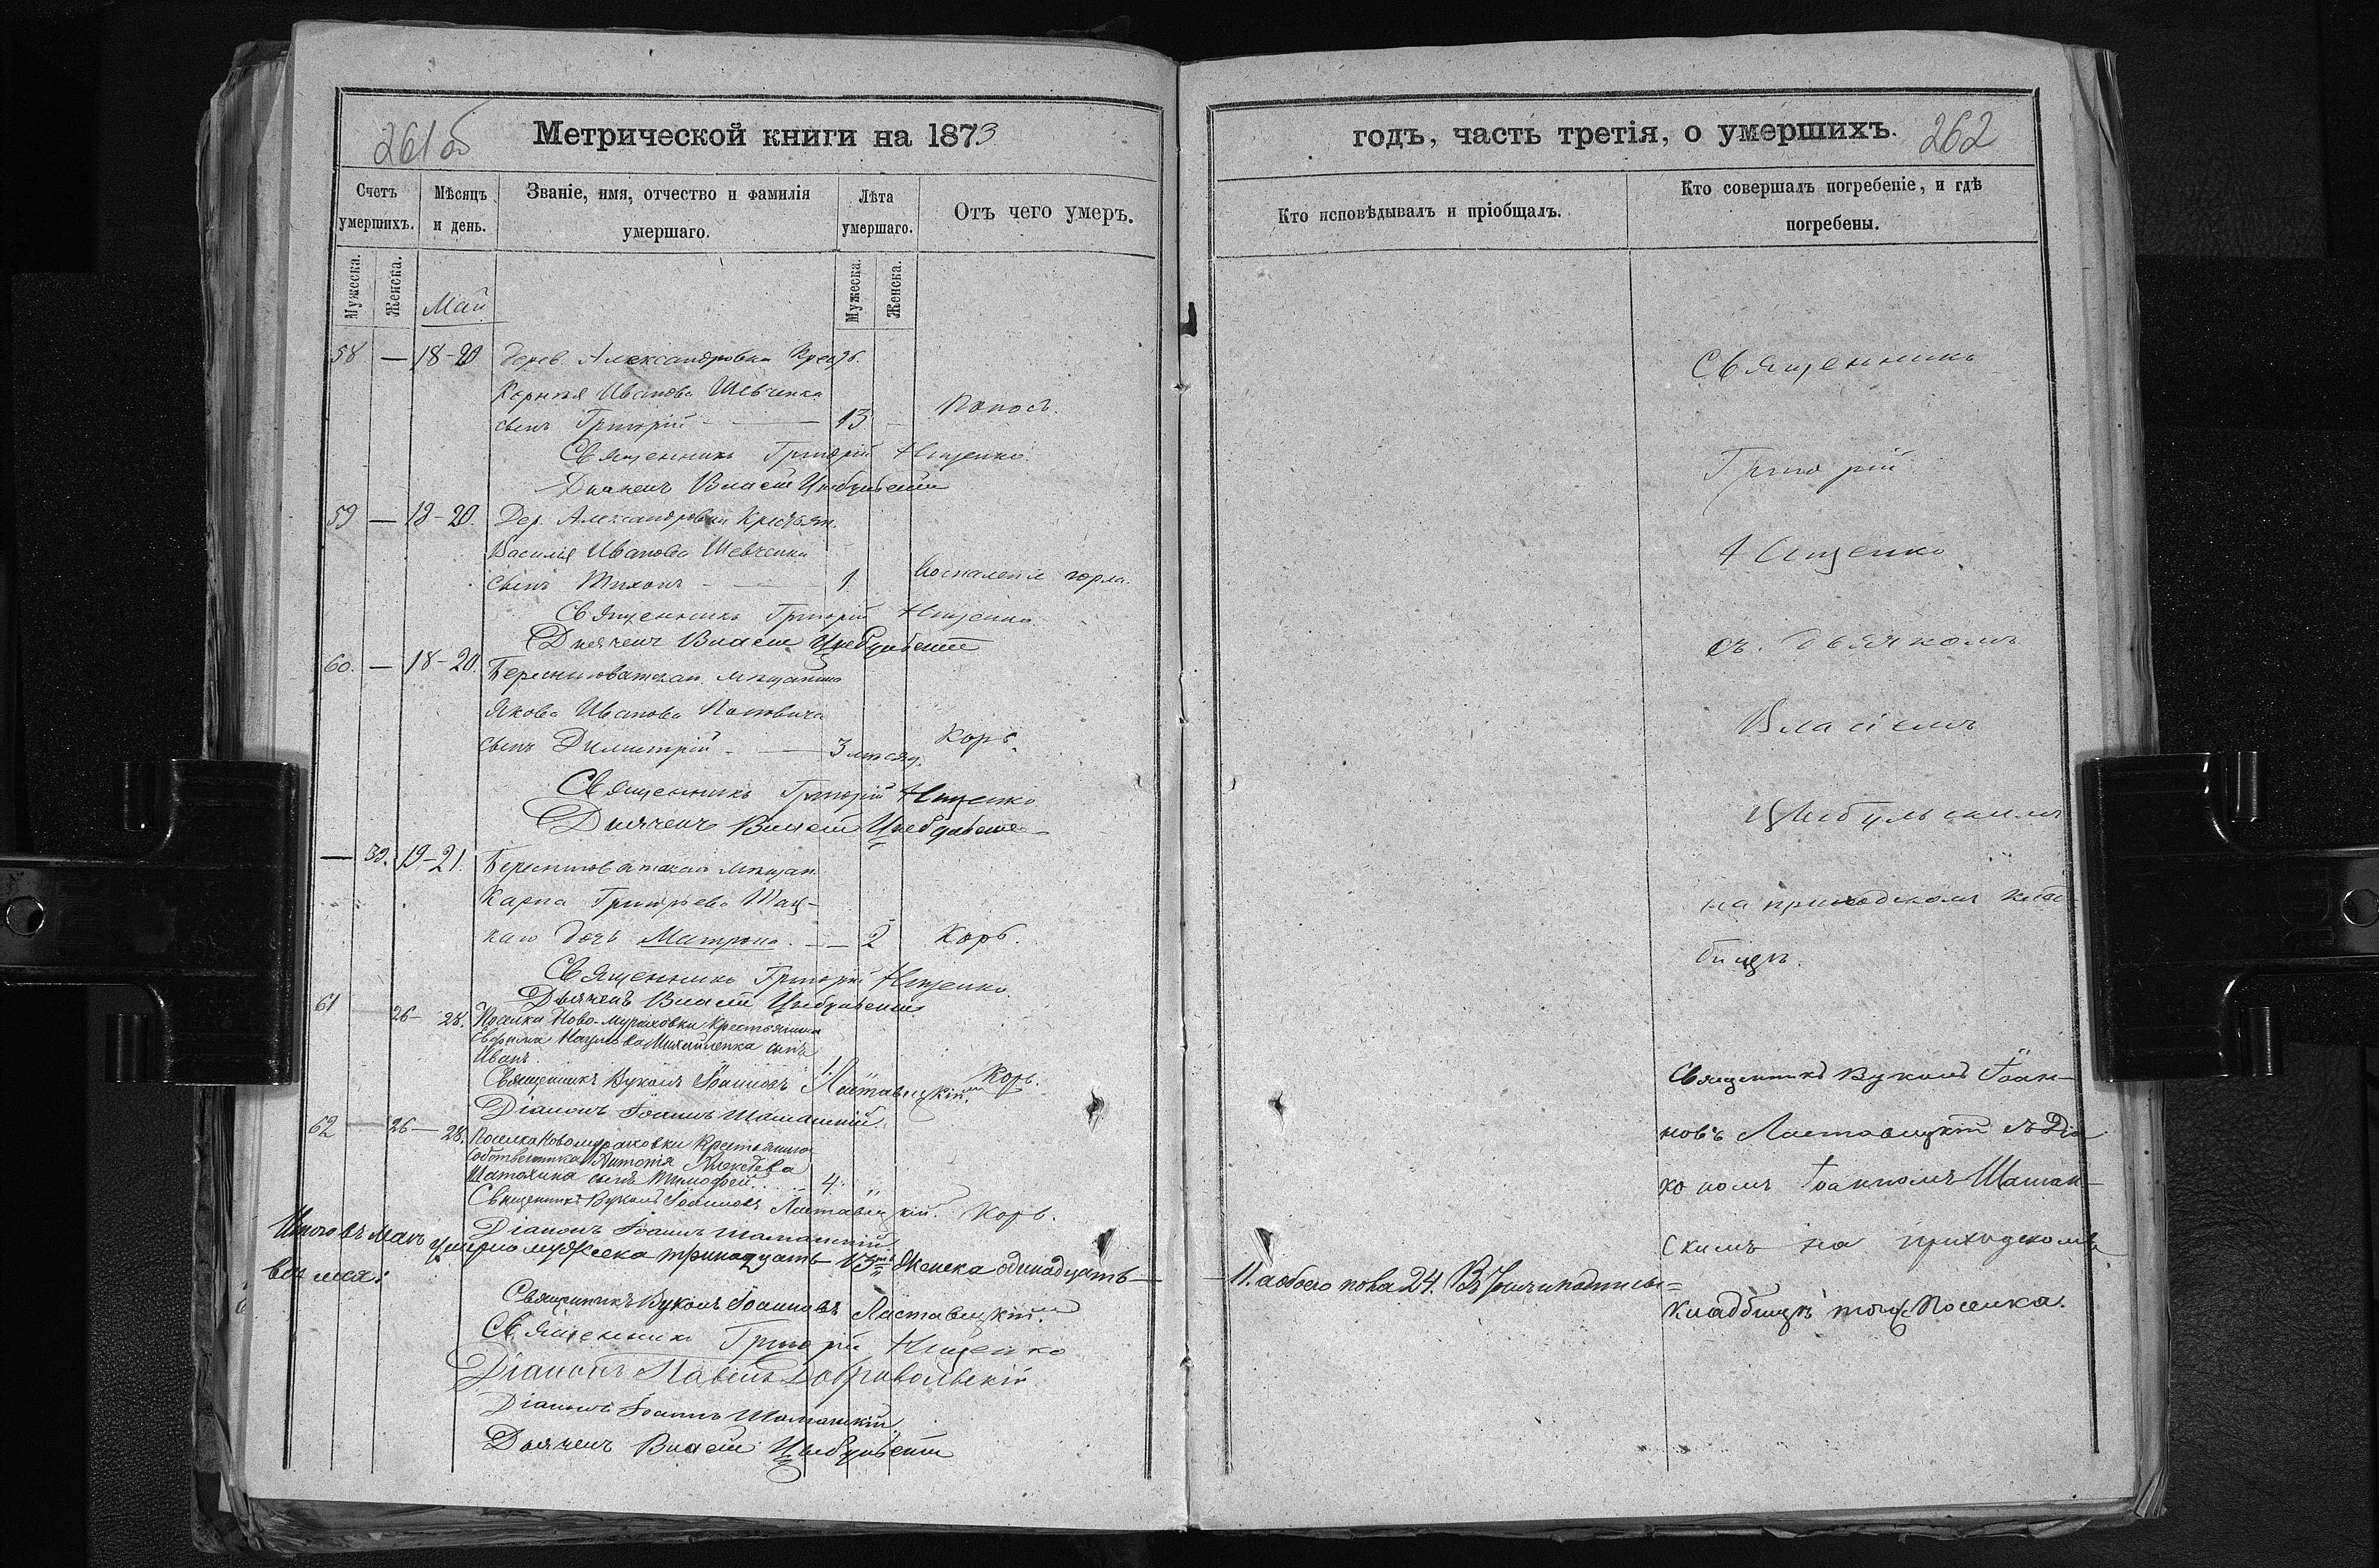 261об
Метрической книги на 1873
Счетъ умершихъ.
Мѣсяцъ и день.
Званіе, имя, отчество и фамилія умершаго.
Лѣта умершаго.
Отъ чего умеръ.
Мужеска.
Женска.
Май
Мужеска.
Женска.
58 — 18-20 дерев. Александровка Крест.
Корнія Иванова Шевченка
сынъ Григорій — 13 Поносъ.
Священникъ Григорій Нищенко.
Дьячекъ Власій Цыбульскій
59 — 18-20. Дер. Александровки Крестьян.
Василія Иванова Шевченка
сынъ Тихонъ — 1. Воспаленіе горла.
Священникъ Григорій Нищенко.
Дьячекъ Власій Цыбульскій
60. — 18-20. Береснеговатскаго мѣщанина
Якова Иванова Поповича
сынъ Димитрій — 3 мѣсяц. Корь.
Священникъ Григорій Нищенко
Дьячекъ Власій Цыбульскій
— 39. 19-21. мѣщан.
Карпа Григорьева Шац-
каго дочь Матрона. — 2 Корь.
Священникъ Григорій Нищенко.
Дьячекъ Власій Цыбульскій
61 26 — 28. Поселка Ново-мураховки Крестьянина
Ефрема Наумова Михайленка сынъ
Иванъ 1. Корь.
Священникъ Вуколъ Іоанновъ Листавецкій.
Діаконъ Іоаннъ Шаманскій.
62 26 — 28. Поселка Новомураховки Крестьянина
собственника Антонія Алексѣева
сынъ Тимофей 4. Корь.
Священникъ Вуколъ Іоанновъ Листавецкій.
Діаконъ Іоаннъ Шаманскій
Итого въ Маѣ умерло мужеска тринадцать 13ть Женска одинадцать —
Священникъ Вуколъ Іоанновъ Листавецкій.
Священникъ Григорій Нищенко
Діаконъ Павелъ Добровольскій
Діаконъ Іоаннъ Шаманскій.
Дьячекъ Власій Цыбульскій
годъ, часть третія, о умершихъ. 262
Кто исповѣдывалъ и пріобщалъ.
Кто совершалъ погребеніе, и гдѣ погребены.
Священникъ
Григорій
Нищенко
съ дьячкомъ
Власіемъ
Цыбульскимъ
на приходскомъ клад-
бищѣ.
Священникъ Вуколъ Іоан-
новъ Листавецкій съ Діа-
кономъ Іоанномъ Шаман-
скимъ на приходскомъ
— 11. а обоего пола 24.
Кладбищѣ того Поселка.